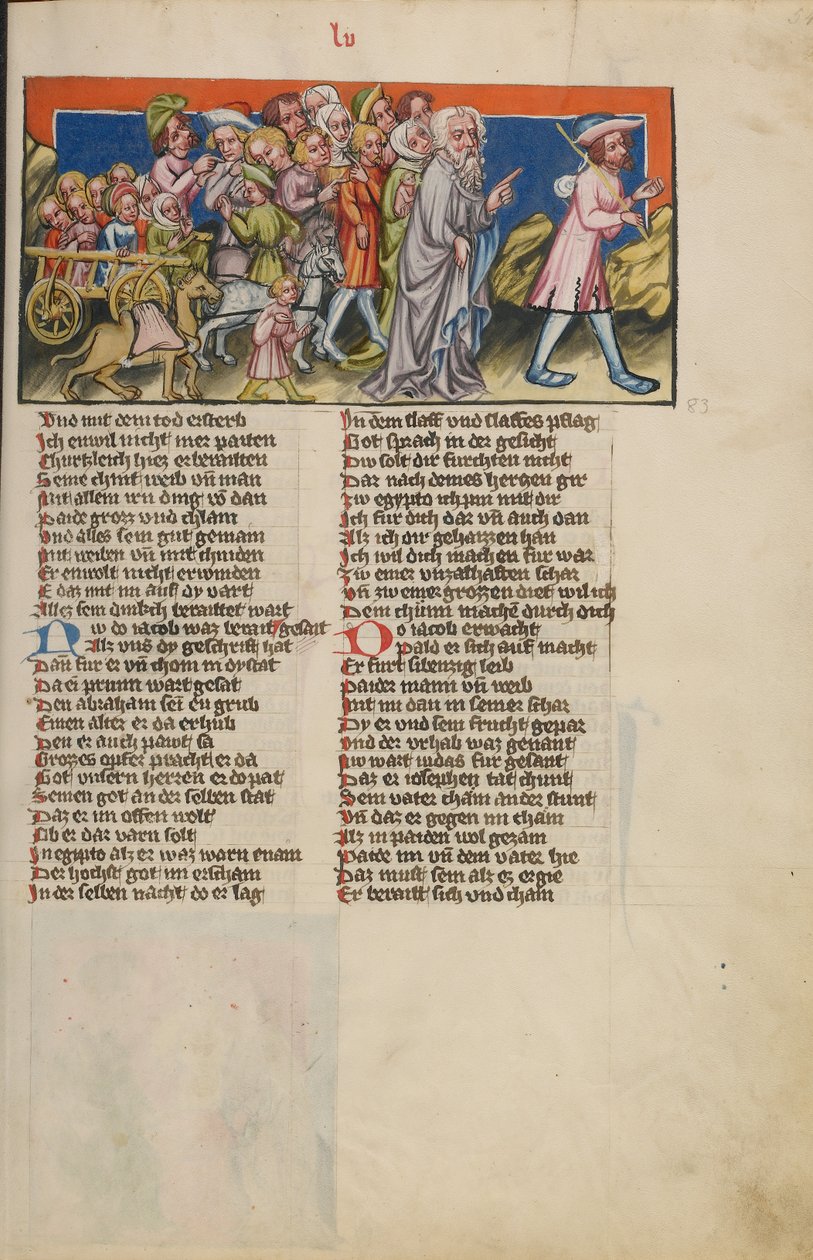 lv
54
83
Vnd mit dem tod ersterb
Ich enwil nicht mer paiten
Churtzleich hiez er beraitten
Seine chint weib vn̄ man
Mit allem irn ding vō dan
Paide grozz vnd chlain
Vnd alles sein gut gemain
Mit weiben vn̄ mit chinden
Er enwolt nicht erwinden
E daz mit im auf dy vart
Allez sein dinkch beraittet wart
Nw do iacob waz berait gesait
Alz vns dy geschrift hat
Dan̄ fur er vn̄ chom in dy stat
Da ei prunn wart gesat
Den abraham seit eu grub
Einen alter er da erhub
Den er auch pawt sa
Grozzes opfer pracht er da
Got vnsern herren er do pat
Seinen got an der selben stat
Daz er im offen wolt
Ob er dar varn solt
In egipto alz er waz warn enain
Der hochst got im erschain
In der selben nacht do er lag
In dem slaff vnd slaffes pflag
Got sprach in der gesicht
Dw solt dir furchten nicht
Dar nach deines hertzen gir
Zw egypto ich pin mit dir
Ich fur dich dar vn̄ auch dan
Alz ich dir gehaizzen han
Ich wil dich machen fur war
Zw einer vnzalhaften schar
Vn̄ zw einer grozzen diet wil ich
Dem chunn machē durch dich
Do iacob erwacht
Pald er sich auf macht
Er furt sibenzig leib
Paider mann vn̄ weib
Mit im dan in seiner schar
Dy er vnd sein frucht gepar
Vnd der vrhab waz genant
Nw wart iudas fur gesant
Daz er iosephen tat chunt
Sein vater chäm an der stunt
Vn̄ daz er gegen im chäm
Alz in paiden wol gezäm
Paide im vn̄ dem vater hie
Daz must sein alz ez ergie
Er berait sich vnd cham